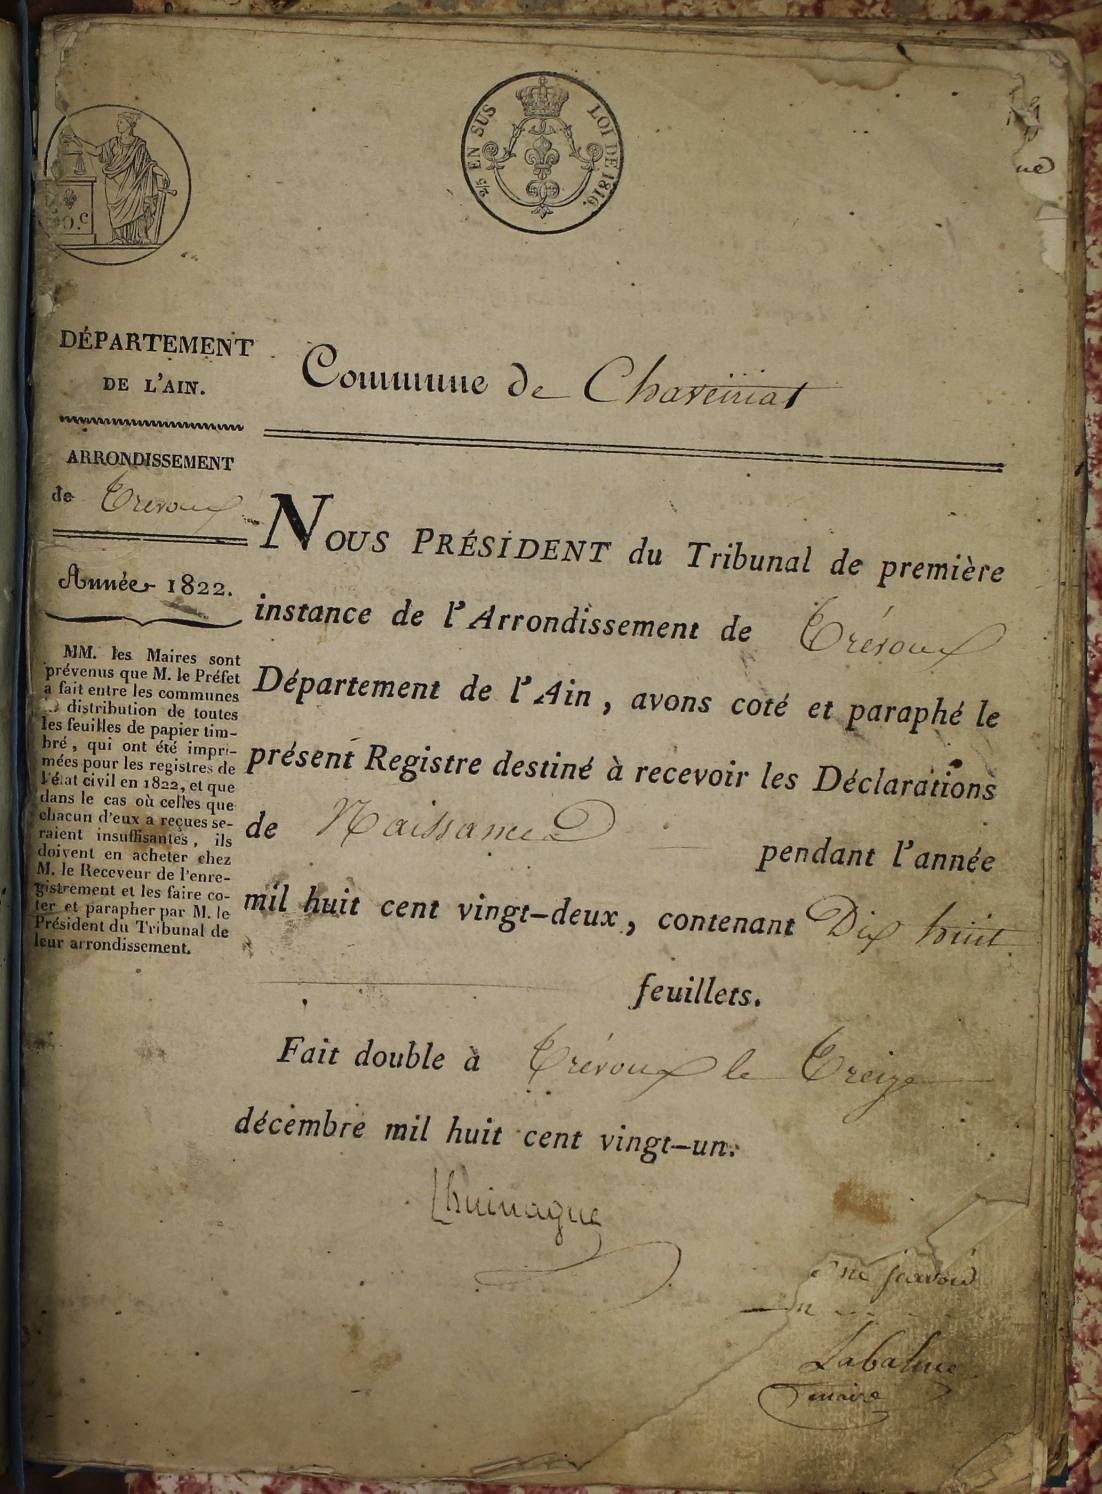 2/5 EN SUS LOI DE 1816.
DÉPARTEMENT
DE L'AIN.
Commune de Chaveiriat
ARRONDISSEMENT
de Trévoux
Année 1822.
MM. les Maires sont
prévenus que M. le Préfet
a fait entre les communes
distribution de toutes
les feuilles de papier tim-
bré, qui ont été impri-
mées pour les registres de
l'état civil en 1822, et que
dans le cas où celles que
chacun d'eux a reçues se-
raient insuffisantes, ils
doivent en acheter chez
M. le Receveur de l'enre-
gistrement et les faire co-
ter et parapher par M. le
Président du Tribunal de
leur arrondissement.
NOUS PRÉSIDENT du Tribunal de première
instance de l'Arrondissement de Trévoux
Département de l'Ain, avons coté et paraphé le
présent Registre destiné à recevoir les Déclarations
de Naissances pendant l'année
mil huit cent vingt-deux, contenant Dix huit
feuillets.
Fait double à Trévoux le Treize
décembre mil huit cent vingt-un.
Labalme
maire